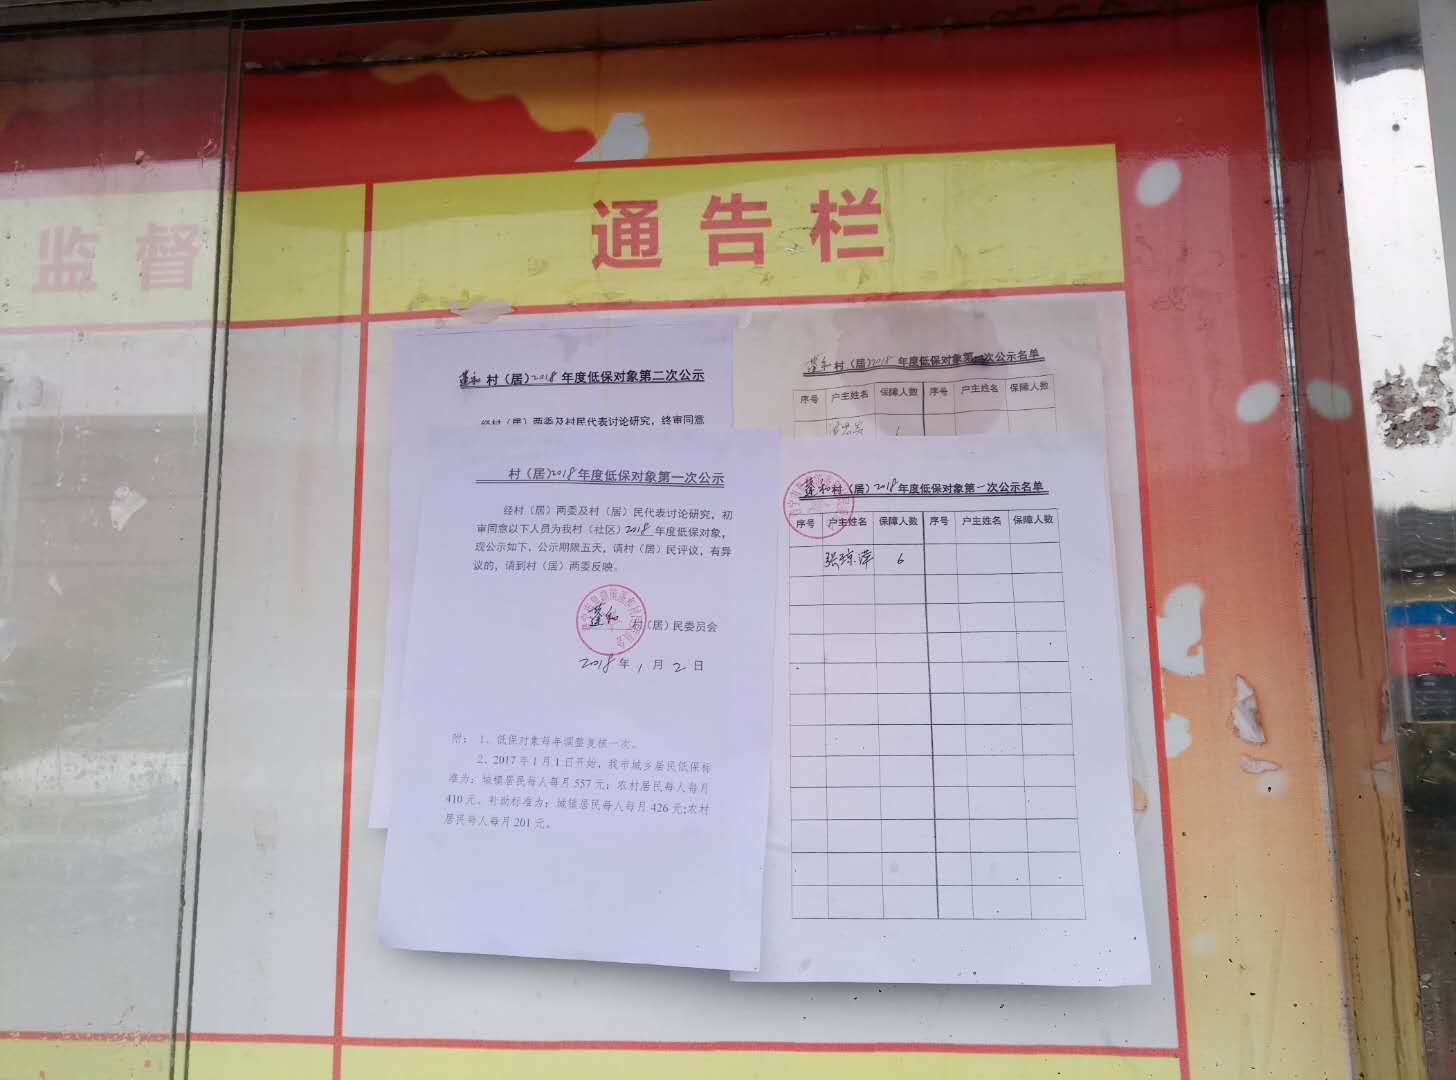 监督
通告栏
蓬和村（居）2018年度低保对象第二次公示
经村（居）两委及村民代表讨论研究，终审同意
村（居）2018年度低保对象第一次公示
经村（居）两委及村（居）民代表讨论研究，初
审同意以下人员为我村（社区）2018年度低保对象，
现公示如下，公示期限五天，请村（居）民评议，有异
议的，请到村（居）两委反映。
蓬和村（居）民委员会
2018年1月2日
附：1、低保对象每年调整复核一次。
2、2017年1月1日开始，我市城乡居民低保标
准为：城镇居民每人每月557元；农村居民每人每月
410元。补助标准为：城镇居民每人每月426元;农村
居民每人每月201元。
蓬和村（居）2018年度低保对象第二次公示名单
序号 户主姓名 保障人数 序号 户主姓名 保障人数
1
蓬和村（居）2018年度低保对象第一次公示名单
序号 户主姓名 保障人数 序号 户主姓名 保障人数
张琼萍 6